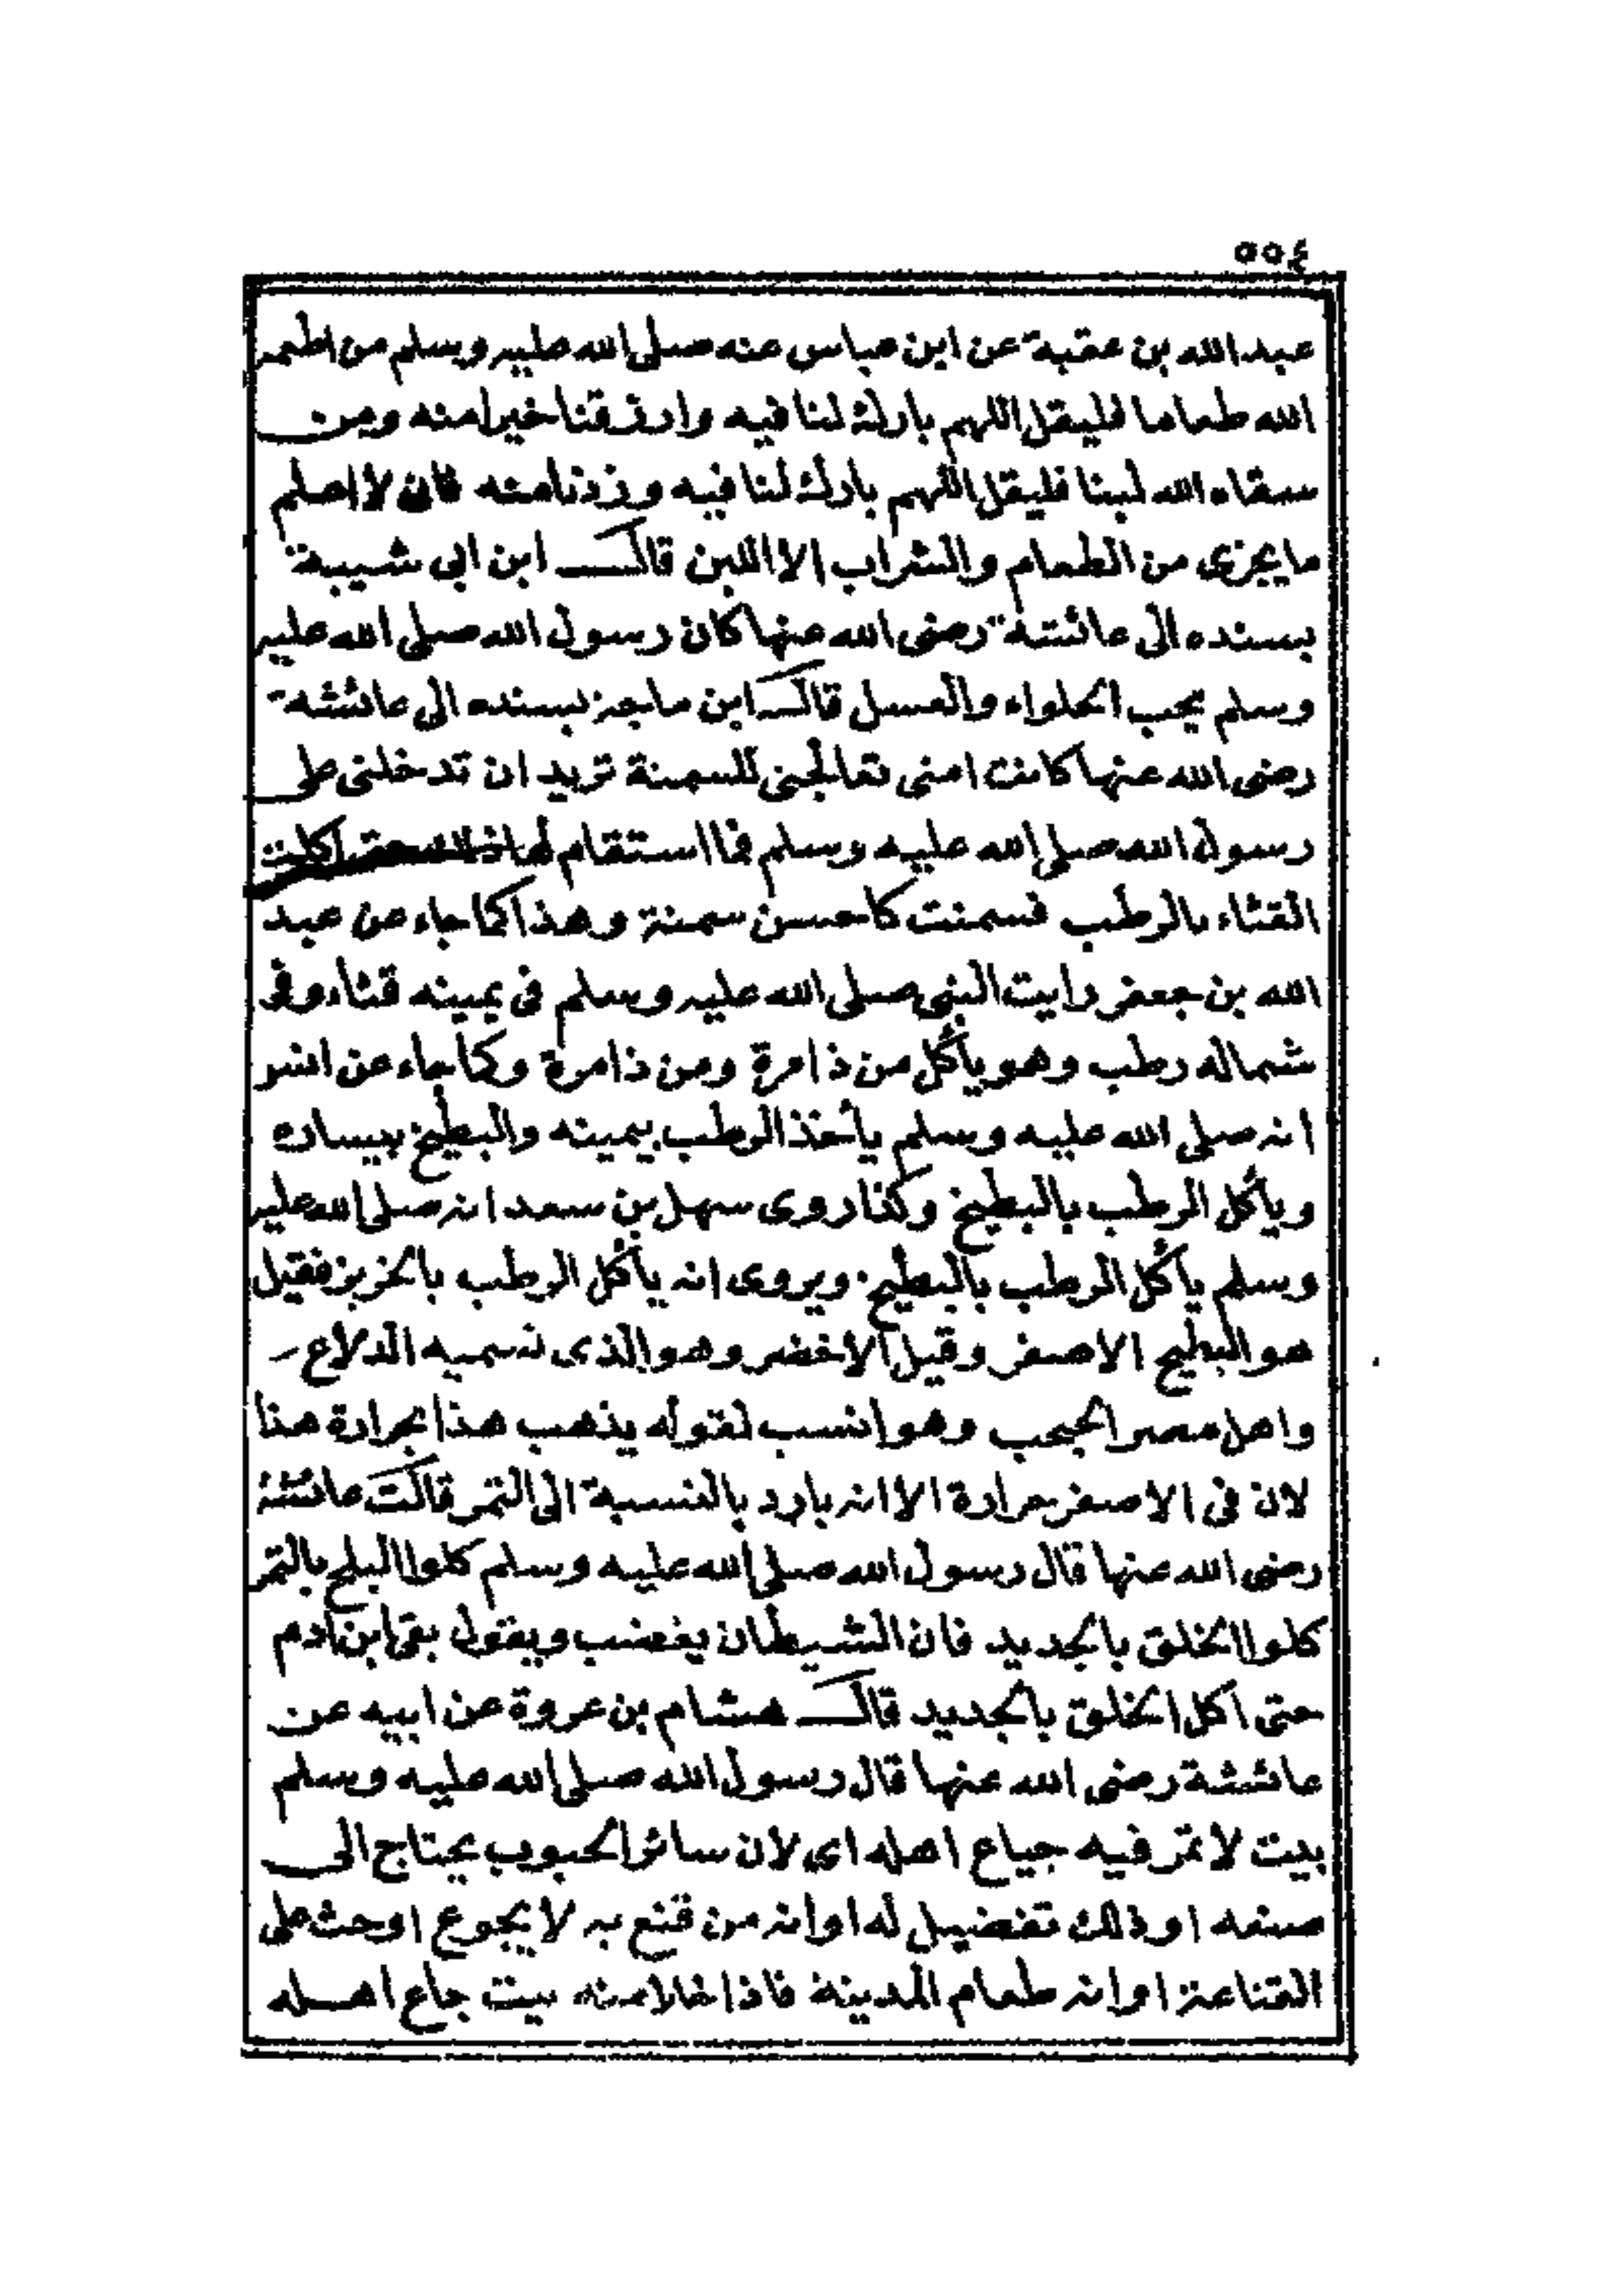 ٥٥٤
عبد الله بن عقبة عن ابن عباس عنه صلى الله عليه وسلم من اطعمه
الله طعاما فليقل اللهم بارك لنا فيه وارزقنا خيرا منه ومن
سقاه الله لبنا فليقل اللهم بارك لنا فيه وزدنا منه فان لا اعلم
ما يجزى من الطعام والشراب الا اللبن قال ابن ابى شيبة
بسنده الى عائشة رضى الله عنها كان رسول الله صلى الله عليه
وسلم يحب الحلواء والعسل قال ابن ماجه بسنده الى عائشة
رضى الله عنها كانت امنى تعالجنى للسمنة تريد ان تدخلنى على
رسول الله صلى الله عليه وسلم فما استقام لها ذلك حتى اكلت
القثاء بالرطب فسمنت كاحسن سمنة وهذا كما جاء عن عبد
الله بن جعفر رايت النبى صلى الله عليه وسلم فى يمينه قثاء وفى
شماله رطب وهو يأكل من ذا مرة ومن ذا مرة وكما جاء عن انس
انه صلى الله عليه وسلم يأخذ الرطب بيمينه والبطيخ بيساره
ويأكل الرطب بالبطيخ وكذا روى سهل بن سعد انه صلى الله عليه
وسلم يأكل الرطب بالبطيخ ويروى انه يأكل الرطب بالخربز فقيل
هو البطيخ الاصفر وقيل الأخضر وهو الذى نسميه الدلاع
واهل مصر الحبحب وهو انسب لقوله يذهب هذا بحرارة هذا
لان فى الاصفر حرارة الا انه بارد بالنسبة الى التمر قالت عائشة
رضى الله عنها قال رسول الله صلى الله عليه وسلم كلوا البلح بالتمر
كلوا الخلق بالجديد فان الشيطان يغضب ويقول بقى ابن ادم
حتى اكل الخلق بالجديد قال هشام بن عروة عن ابيه عن
عائشة رضى الله عنها قال رسول الله صلى الله عليه وسلم
بيت لا تمر فيه جياع اهله اى لان سائر الحبوب يحتاج الى
صنعه او ذلك تفضيل له او انه من قنع به لا يجوع او حث على
القناعة او انه طعام المدينة فاذا خلا منه بيت جاع اهله